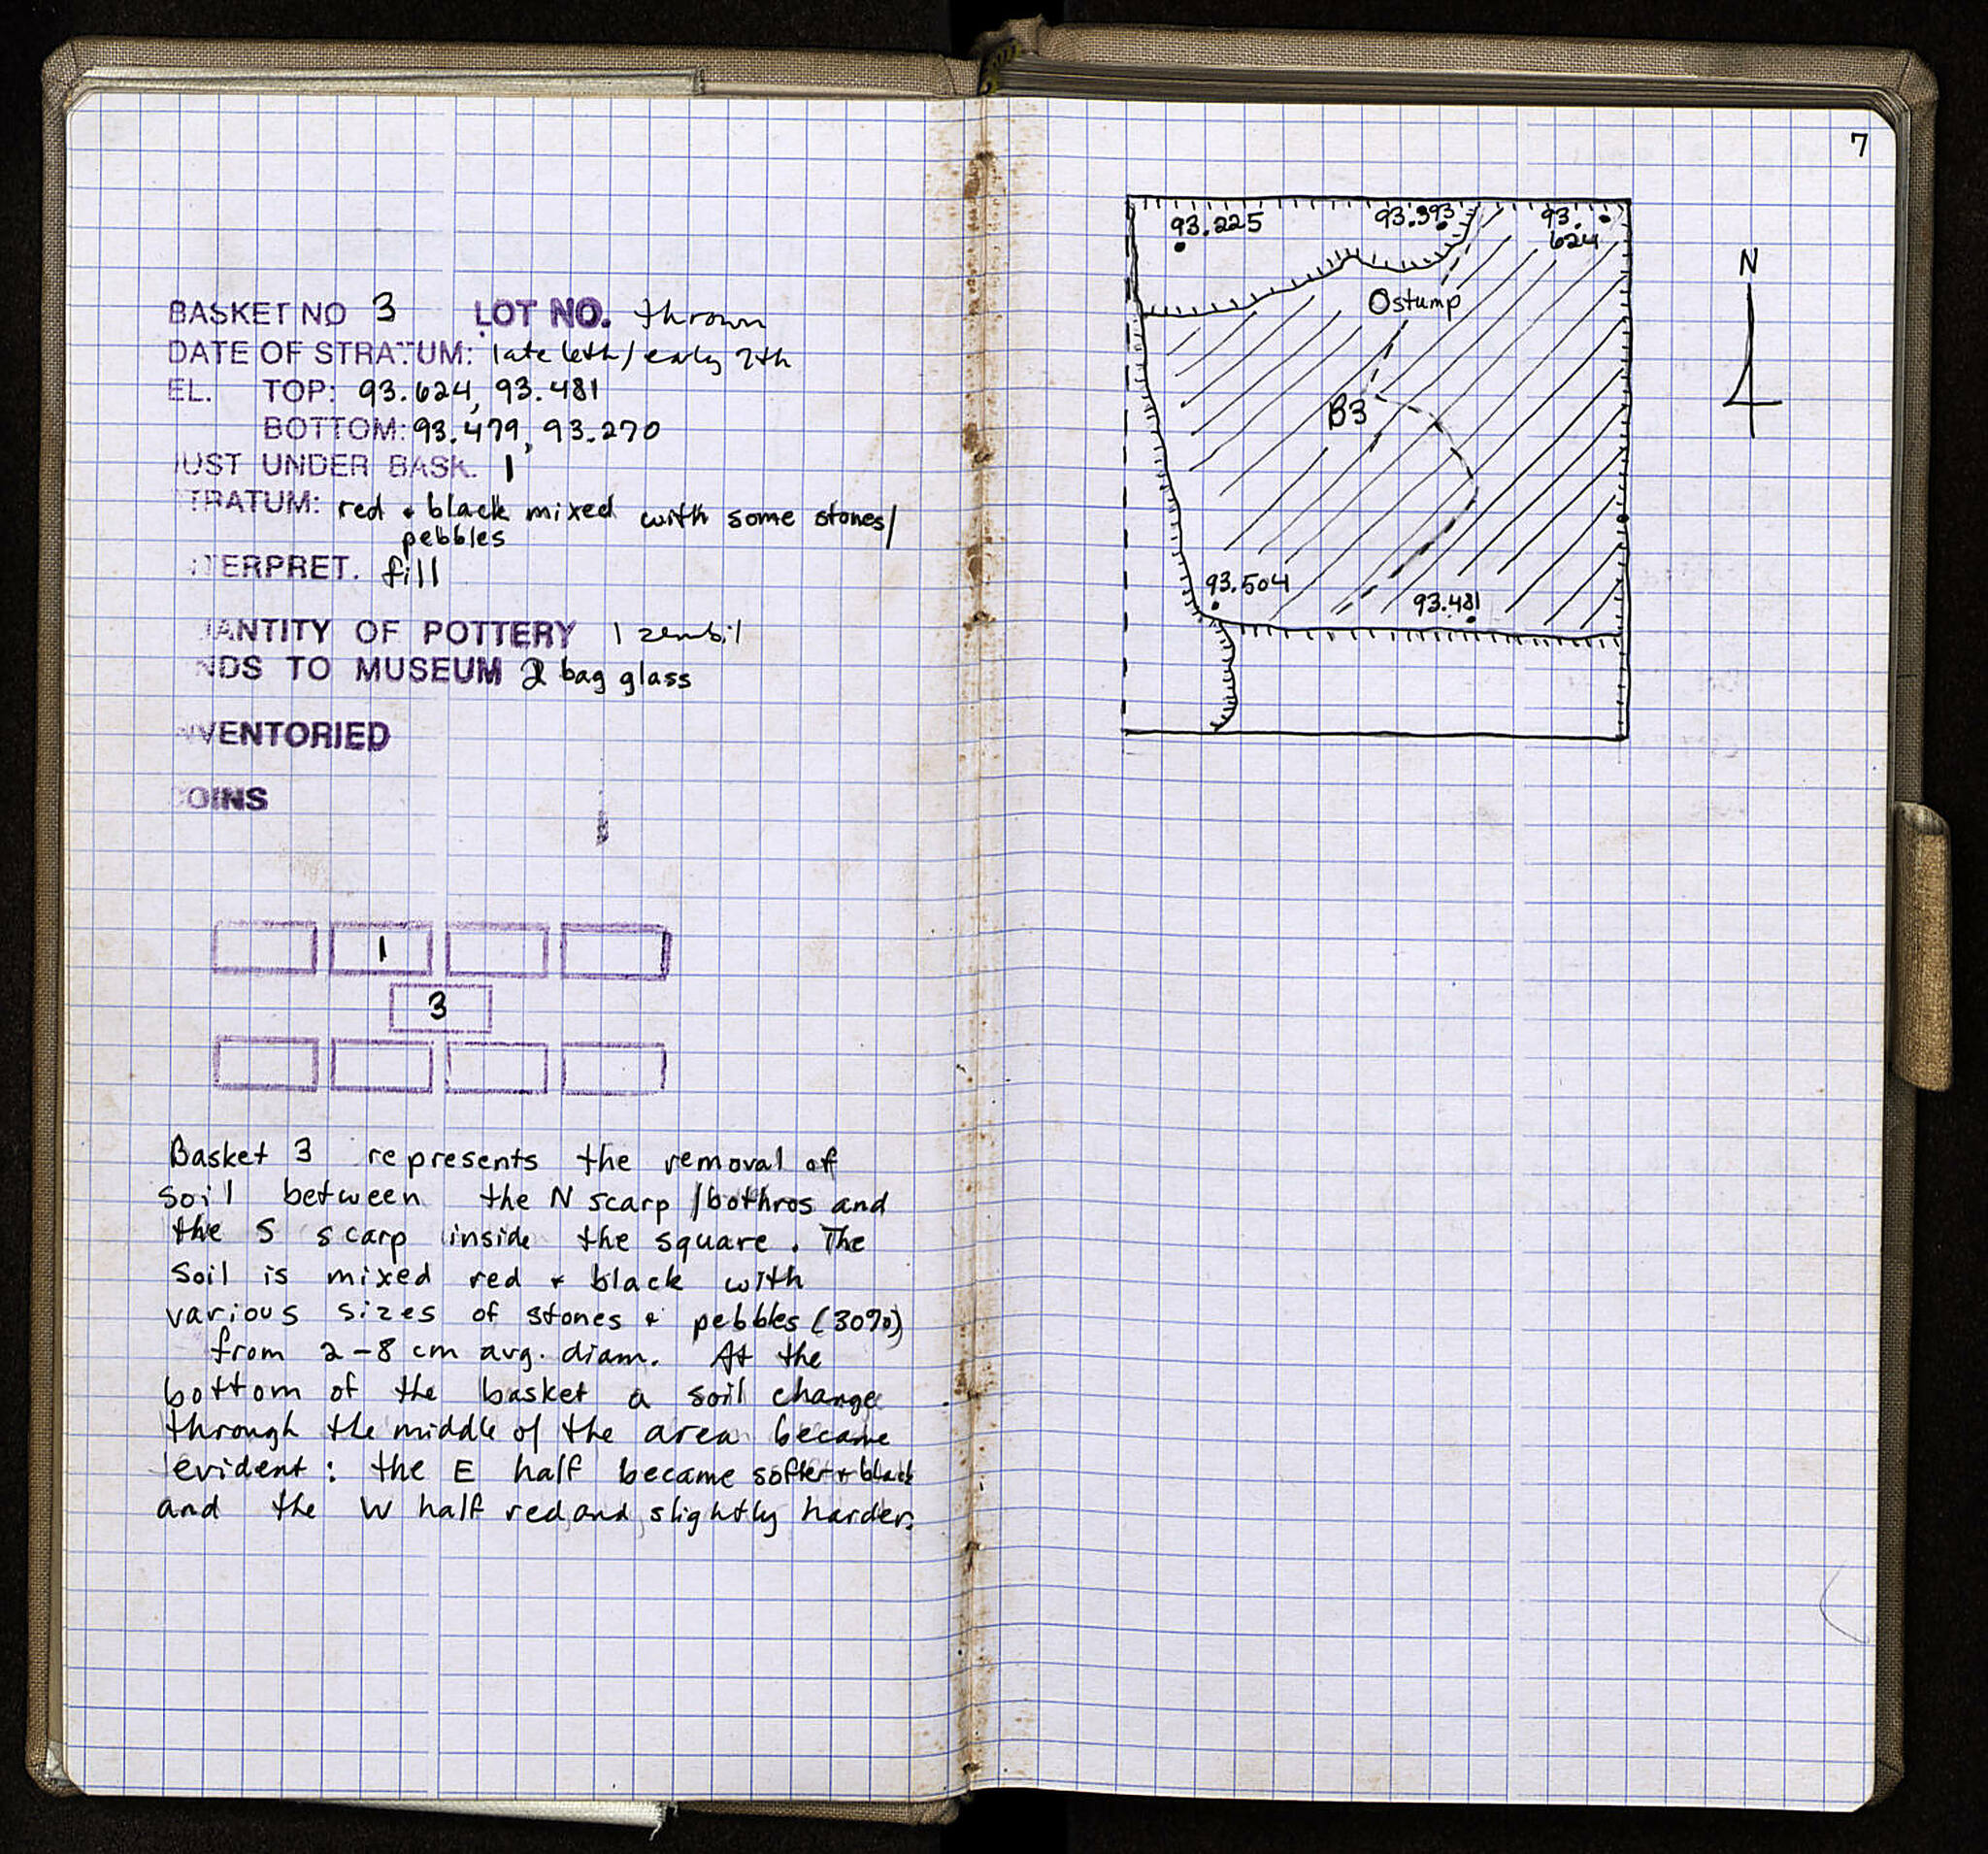 BASKET NO 3 LOT NO. thrown
DATE OF STRATUM: late 6th/early 7th
EL. TOP: 93.624, 93.481
BOTTOM: 93.479, 93.270
JUST UNDER BASK. 1
STRATUM: red + black mixed with some stones/
pebbles
INTERPRET. fill
QUANTITY OF POTTERY 1 zembil
FINDS TO MUSEUM bag glass
INVENTORIED
COINS
1
3
Basket 3 represents the removal of
soil between the N scarp/bothros and
the S scarp inside the square. The
soil is mixed red + black with
various sizes of stones + pebbles (30%)
from 2-8 cm avg. diam. At the
bottom of the basket a soil change
through the middle of the area became
evident: the E half became softer + black
and the W half red and slightly harder.
7
93.225 93.393 93.
624
N
stump
B3
93.504
93.481